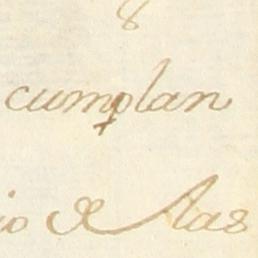 8
cumplan
io de las